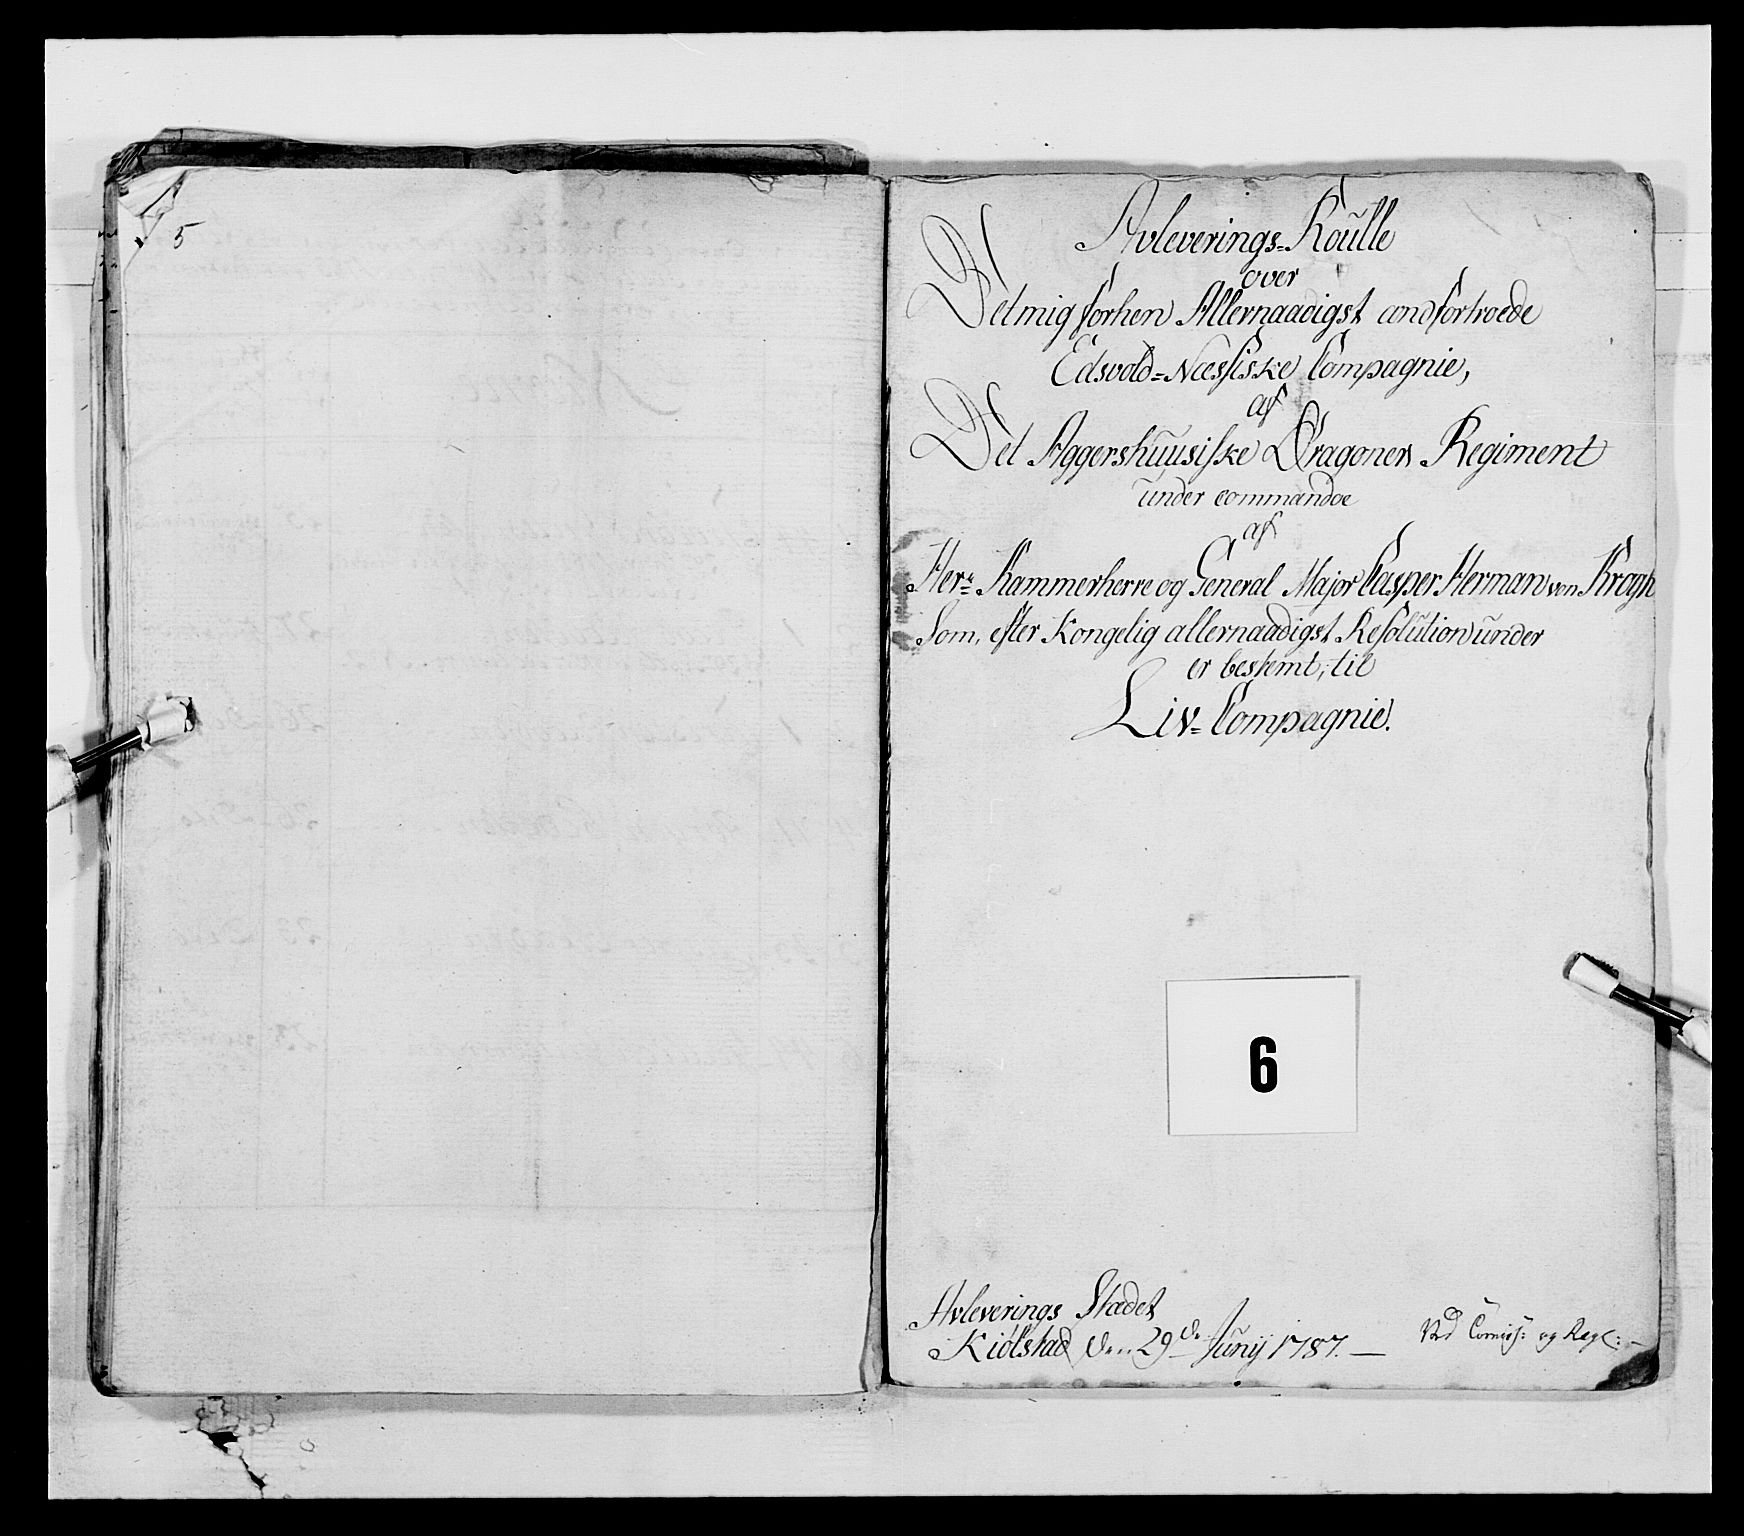 5
Avleverings-Roulle
over
Det mig forhen Allernaadigst andfortroede
Edsvold-Næssiske Compagnie,
af
Det Aggershuusiske Dragoner Regiment
under commandoe
af
Herr Kammerherre og General Major Casper Herman von Krogh
Som, efter Kongelig allernaadigst Resolution under
er bestemt, til
Liv-Compagnie.
6
Avleverings Stædet
Kiølstad den 29de Junij 1787. —
Ved Comiss: og Regl: —